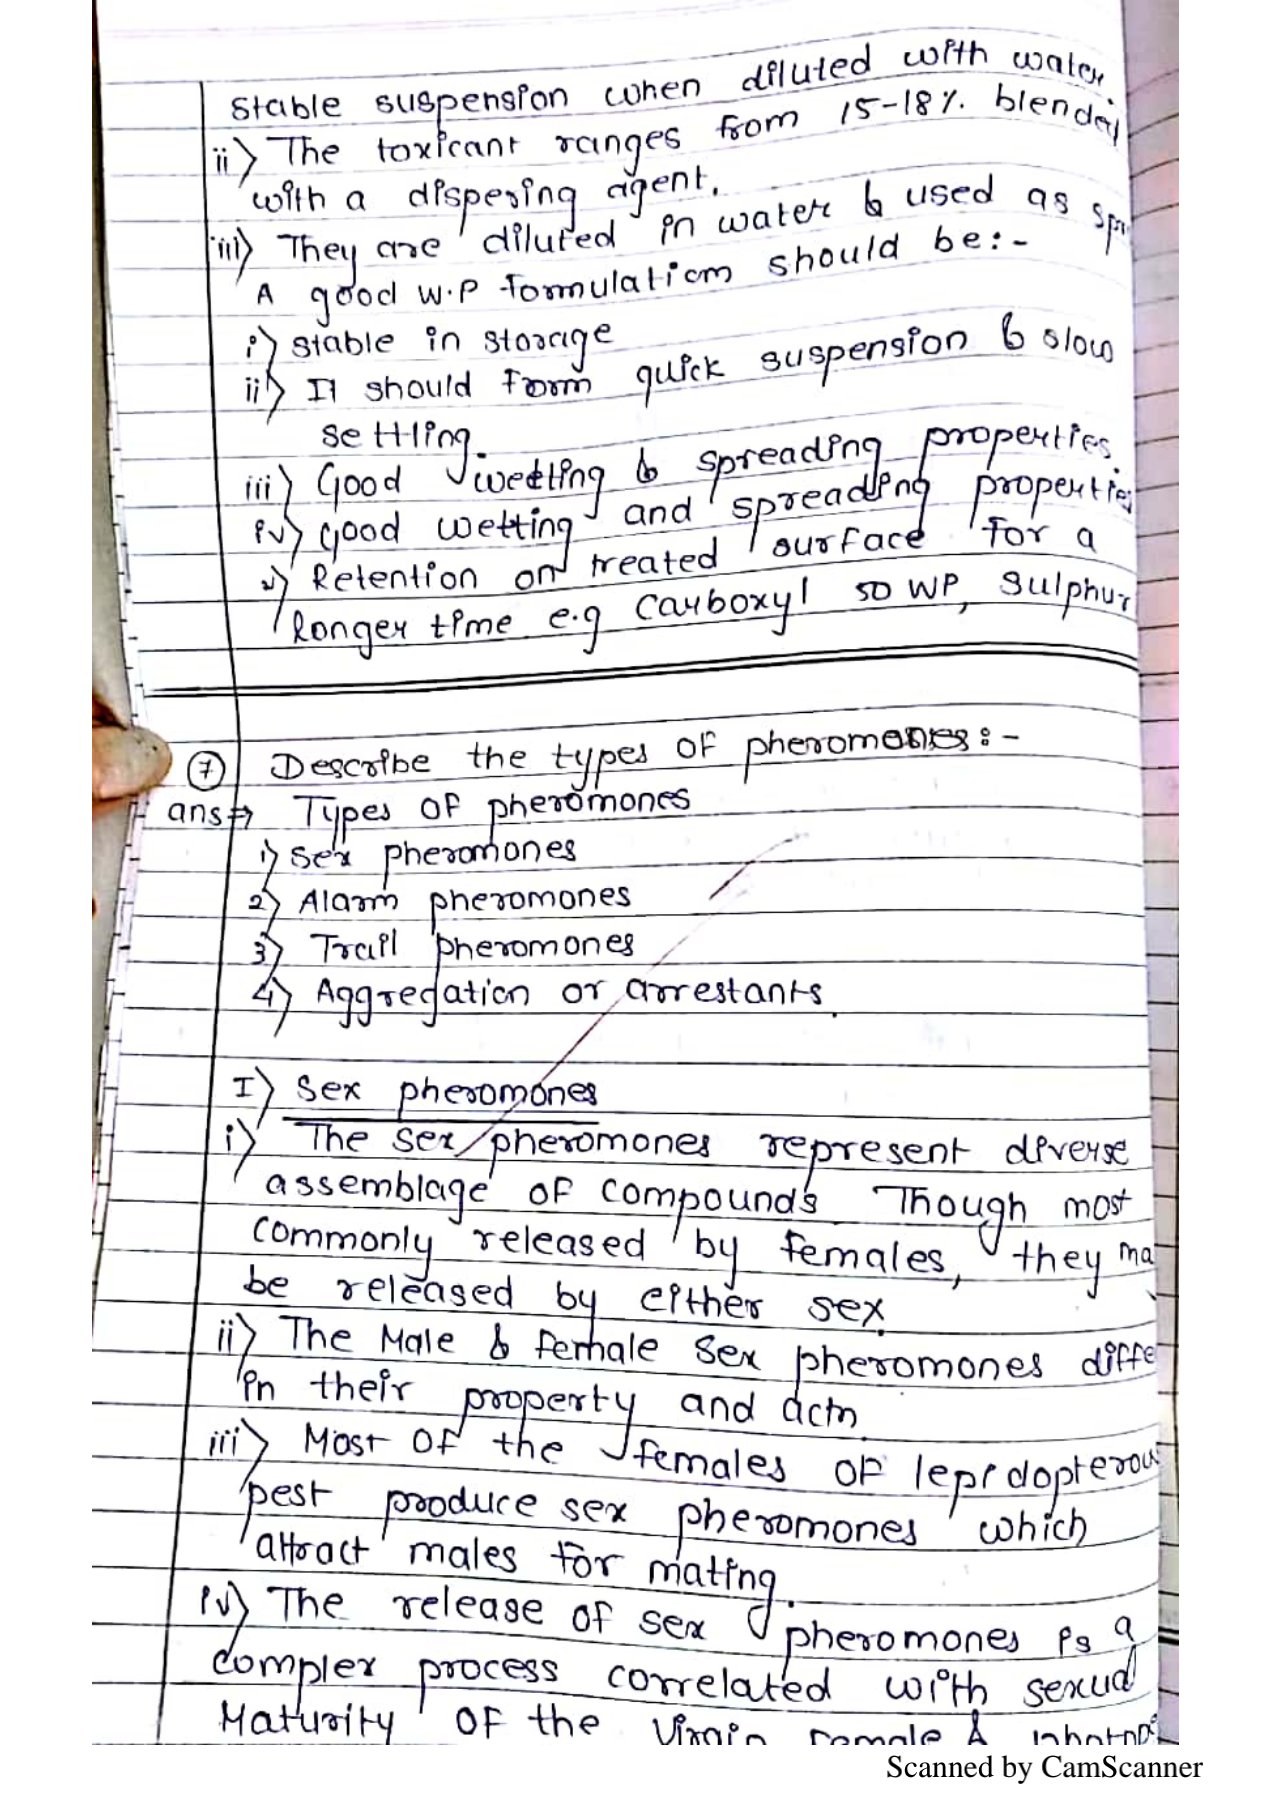 Stable suspension when diluted with water.
ii) The toxicant ranges from 15-18%. blended
with a dispering agent.
iii) They are diluted in water & used as
A good W.P formulation should be:-
i) stable in storage
ii) It should form quick suspension & slow
settling.
iii) Good wetting & spreading properties.
iv) Good wetting and spreading properties
v) Retention on treated surface for a
longer time e.g Carboxyl 50 WP, Sulphur
7 Describe the types of pheromones:-
ans⇒ Types of pheromones
1) Sex pheromones
2) Alarm pheromones
3) Trail pheromones
4) Aggregation or arrestants.
I) Sex pheromones
i) The sex pheromones represent diverse
assemblage of compounds Though most
commonly released by females, they ma
be released by either sex.
ii) The Male & female sex pheromones diffe
in their property and actn.
iii) Most of the females of lepidopterou
pest produce sex pheromones which
attract males for mating.
iv) The release of sex pheromones is a
complex process correlated with sexual
Maturity of the virgin female &
Scanned by CamScanner